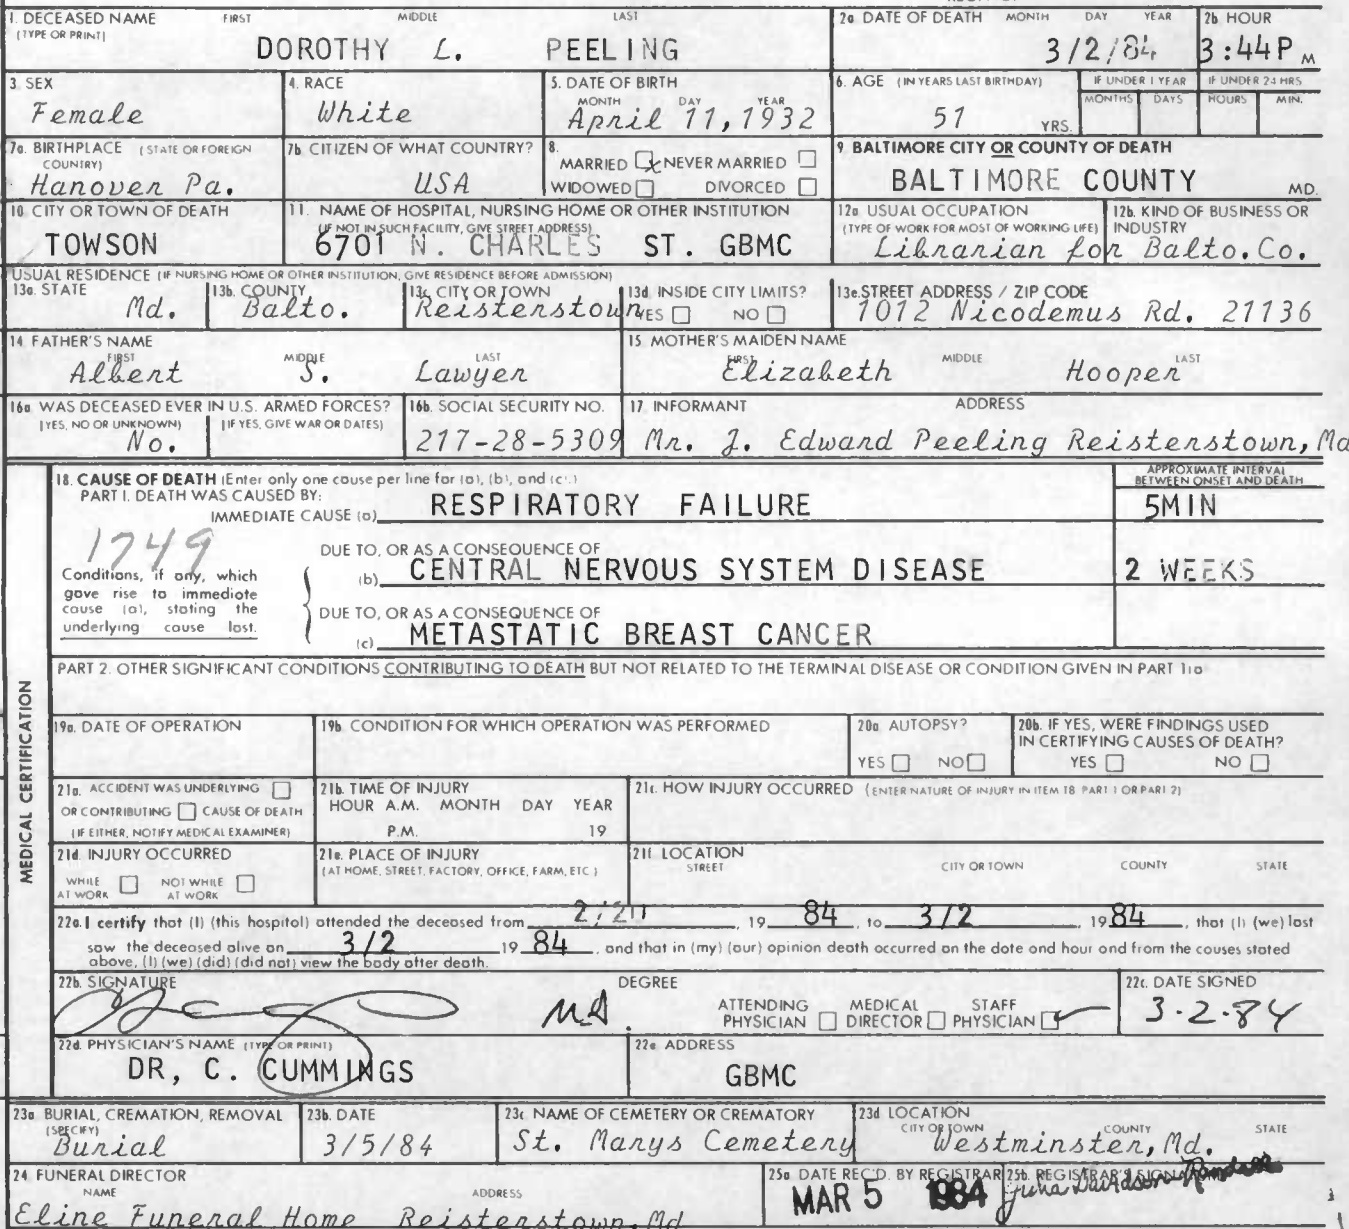 1. DECEASED NAME (TYPE OR PRINT) FIRST MIDDLE LAST
DOROTHY L. PEELING
2a DATE OF DEATH MONTH DAY YEAR
3/2/84
2b HOUR
3:44P M
3 SEX
Female
4. RACE
White
5. DATE OF BIRTH
MONTH DAY YEAR
April 11, 1932
6. AGE (IN YEARS LAST BIRTHDAY)
51 YRS.
IF UNDER 1 YEAR
MONTHS DAYS
IF UNDER 24 HRS
HOURS MIN.
7a. BIRTHPLACE (STATE OR FOREIGN COUNTRY)
Hanover Pa.
7b CITIZEN OF WHAT COUNTRY?
USA
8.
MARRIED x NEVER MARRIED
WIDOWED DIVORCED
9 BALTIMORE CITY OR COUNTY OF DEATH
BALTIMORE COUNTY MD.
10 CITY OR TOWN OF DEATH
TOWSON
11. NAME OF HOSPITAL, NURSING HOME OR OTHER INSTITUTION
(IF NOT IN SUCH FACILITY, GIVE STREET ADDRESS)
6701 N. CHARLES ST. GBMC
12a USUAL OCCUPATION
(TYPE OF WORK FOR MOST OF WORKING LIFE)
12b. KIND OF BUSINESS OR INDUSTRY
Librarian for Balto.Co.
USUAL RESIDENCE (IF NURSING HOME OR OTHER INSTITUTION, GIVE RESIDENCE BEFORE ADMISSION)
13a. STATE
Md.
13b. COUNTY
Balto.
13c CITY OR TOWN
Reisterstown
13d. INSIDE CITY LIMITS?
YES NO
13e. STREET ADDRESS / ZIP CODE
1012 Nicodemus Rd. 21136
14 FATHER'S NAME
FIRST MIDDLE LAST
Albert S. Lawyer
15 MOTHER'S MAIDEN NAME
FIRST MIDDLE LAST
Elizabeth Hooper
16a WAS DECEASED EVER IN U.S. ARMED FORCES?
(YES, NO OR UNKNOWN) (IF YES, GIVE WAR OR DATES)
No.
16b. SOCIAL SECURITY NO.
217-28-5309
17 INFORMANT ADDRESS
Mr. J. Edward Peeling Reisterstown, Md
MEDICAL CERTIFICATION
18. CAUSE OF DEATH (Enter only one cause per line for (a), (b), and (c).)
PART I. DEATH WAS CAUSED BY:
APPROXIMATE INTERVAL BETWEEN ONSET AND DEATH
IMMEDIATE CAUSE (a) RESPIRATORY FAILURE
5MIN
1749
Conditions, if any, which
gave rise to immediate
cause (a), stating the
underlying cause last.
DUE TO, OR AS A CONSEQUENCE OF
(b) CENTRAL NERVOUS SYSTEM DISEASE
2 WEEKS
DUE TO, OR AS A CONSEQUENCE OF
(c) METASTATIC BREAST CANCER
PART 2. OTHER SIGNIFICANT CONDITIONS CONTRIBUTING TO DEATH BUT NOT RELATED TO THE TERMINAL DISEASE OR CONDITION GIVEN IN PART 1(a
19a. DATE OF OPERATION
19b. CONDITION FOR WHICH OPERATION WAS PERFORMED
20a AUTOPSY?
YES NO
20b. IF YES, WERE FINDINGS USED
IN CERTIFYING CAUSES OF DEATH?
YES NO
21a. ACCIDENT WAS UNDERLYING
OR CONTRIBUTING CAUSE OF DEATH
(IF EITHER, NOTIFY MEDICAL EXAMINER)
21b. TIME OF INJURY
HOUR A.M. MONTH DAY YEAR
P.M. 19
21c. HOW INJURY OCCURRED (ENTER NATURE OF INJURY IN ITEM 18 PART 1 OR PART 2)
21d. INJURY OCCURRED
WHILE AT WORK NOT WHILE AT WORK
21e. PLACE OF INJURY
(AT HOME, STREET, FACTORY, OFFICE, FARM, ETC.)
21f LOCATION
STREET CITY OR TOWN COUNTY STATE
22a. I certify that (I) (this hospital) attended the deceased from 19 84, to 3/2 1984, that (I) (we) last
saw the deceased alive on 3/2 19 84, and that in (my) (our) opinion death occurred on the date and hour and from the causes stated
above, (I) (we) (did) (did not) view the body after death.
22b. SIGNATURE DEGREE
M.D.
ATTENDING PHYSICIAN MEDICAL DIRECTOR STAFF PHYSICIAN
22c. DATE SIGNED
3-2-84
22d. PHYSICIAN'S NAME (TYPE OR PRINT)
DR, C. CUMMINGS
22e ADDRESS
GBMC
23a BURIAL, CREMATION, REMOVAL
(SPECIFY)
Burial
23b. DATE
3/5/84
23c. NAME OF CEMETERY OR CREMATORY
St. Marys Cemetery
23d LOCATION
CITY OR TOWN COUNTY STATE
Westminster, Md.
24 FUNERAL DIRECTOR
NAME ADDRESS
Eline Funeral Home Reisterstown, Md
25a DATE REC'D. BY REGISTRAR
MAR 5 1984
25b. REGISTRAR'S SIGNATURE
Julia Davidson Randall